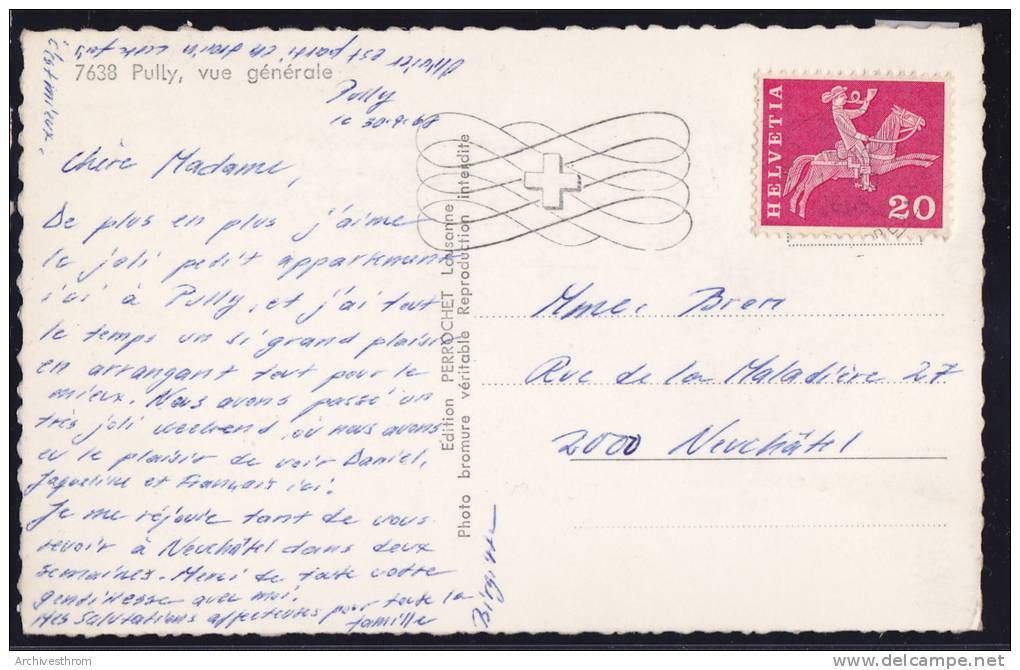 7638 Pully, vue générale
Pully
le 30.9.68
Chère Madame,
De plus en plus j'aime
le joli pedit appartement
ici à Pully, et j'ai tout
le temps un si grand plaisir
en arrangant tout pour le
mieux. Nous avons passé un
très joli weekend, où nous avons
eu le plaisir de voir Daniel,
Jaqueline et Français ici.
Je me réjouie tant de vous
revoir à Neuchâtel dans deux
semaines. Merci de toute votre
gendillesse avec moi.
Mes salutations affecteuses pour toute la
famille
Birgitte
Olivier est parti en
Edition PERROCHET Lausanne
Photo bromure véritable Reproduction interdite
HELVETIA
20
Mme. Bron
Rue de la Maladière 27
2000 Neuchâtel
Archivesthrom
delcampe.net